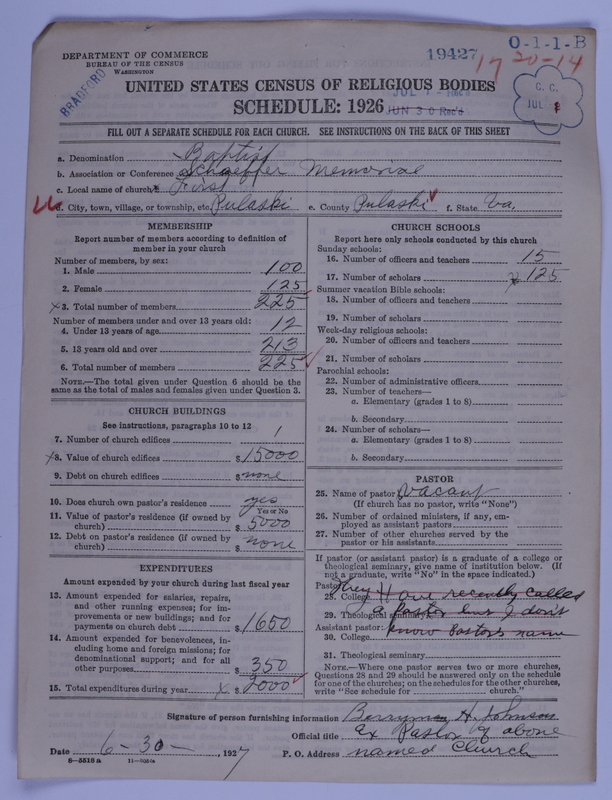 DEPARTMENT OF COMMERCE
BUREAU OF THE CENSUS
WASHINGTON
BRADFORD
19427
0-1-1-B
17 20-14
UNITED STATES CENSUS OF RELIGIOUS BODIES
SCHEDULE: 1926
JUL 1 - Rec'd
JUN 30 Rec'd
C. C.
JUL 8
FILL OUT A SEPARATE SCHEDULE FOR EACH CHURCH. SEE INSTRUCTIONS ON THE BACK OF THIS SHEET
a. Denomination Baptist
b. Association or Conference Schaeffer Memorial
c. Local name of church First
d. City, town, village, or township, etc. Pulaski e. County Pulaski f. State Va.
MEMBERSHIP
Report number of members according to definition of
member in your church
Number of members, by sex:
1. Male 100
2. Female 125
3. Total number of members 225
Number of members under and over 13 years old:
4. Under 13 years of age 12
5. 13 years old and over 213
6. Total number of members 225
NOTE.—The total given under Question 6 should be the
same as the total of males and females given under Question 3.
CHURCH BUILDINGS
See instructions, paragraphs 10 to 12
7. Number of church edifices 1
8. Value of church edifices $ 15000
9. Debt on church edifices $ none
10. Does church own pastor's residence yes
Yes or No
11. Value of pastor's residence (if owned by
church) $ 5000
12. Debt on pastor's residence (if owned by
church) $ none
EXPENDITURES
Amount expended by your church during last fiscal year
13. Amount expended for salaries, repairs,
and other running expenses; for im-
provements or new buildings; and for
payments on church debt $ 1650
14. Amount expended for benevolences, in-
cluding home and foreign missions; for
denominational support; and for all
other purposes $ 350
15. Total expenditures during year $ 2000
CHURCH SCHOOLS
Report here only schools conducted by this church
Sunday schools:
16. Number of officers and teachers 15
17. Number of scholars 125
Summer vacation Bible schools:
18. Number of officers and teachers
19. Number of scholars
Week-day religious schools:
20. Number of officers and teachers
21. Number of scholars
Parochial schools:
22. Number of administrative officers
23. Number of teachers—
a. Elementary (grades 1 to 8)
b. Secondary
24. Number of scholars—
a. Elementary (grades 1 to 8)
b. Secondary
PASTOR
25. Name of pastor Vacant
(If church has no pastor, write "None")
26. Number of ordained ministers, if any, em-
ployed as assistant pastors
27. Number of other churches served by the
pastor or his assistants
If pastor (or assistant pastor) is a graduate of a college or
theological seminary, give name of institution below. (If
not a graduate, write "No" in the space indicated.)
Pastor:
28. College They have recently called
29. Theological seminary a Pastor but I don't
Assistant pastor: know Pastor's name
30. College
31. Theological seminary
NOTE.—Where one pastor serves two or more churches,
Questions 28 and 29 should be answered only on the schedule
for one of the churches; on the schedules for the other churches,
write "See schedule for church."
Signature of person furnishing information Berryman H. Johnson
Official title Ex Pastor of above
Date 6-30-, 1927 P. O. Address named Church
8-5518a 11-9024a